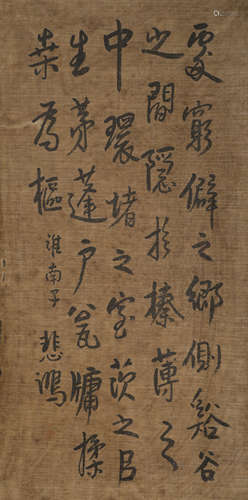 處窮僻之鄉側谿谷
之間隱於榛薄之
中環堵之室茨之㠯
生茅蓬戶瓮牖揉
桑為樞 淮南子 悲鴻